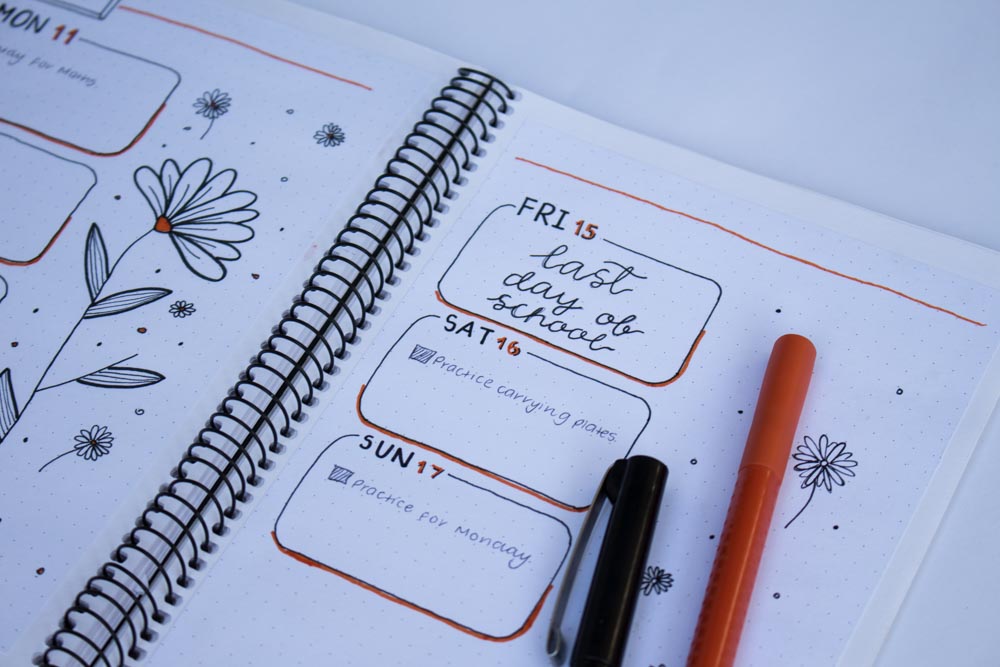 MON 11
for Maths.
FRI 15
last
day of
school
SAT 16
Practice carrying plates.
SUN 17
Practice for Monday.